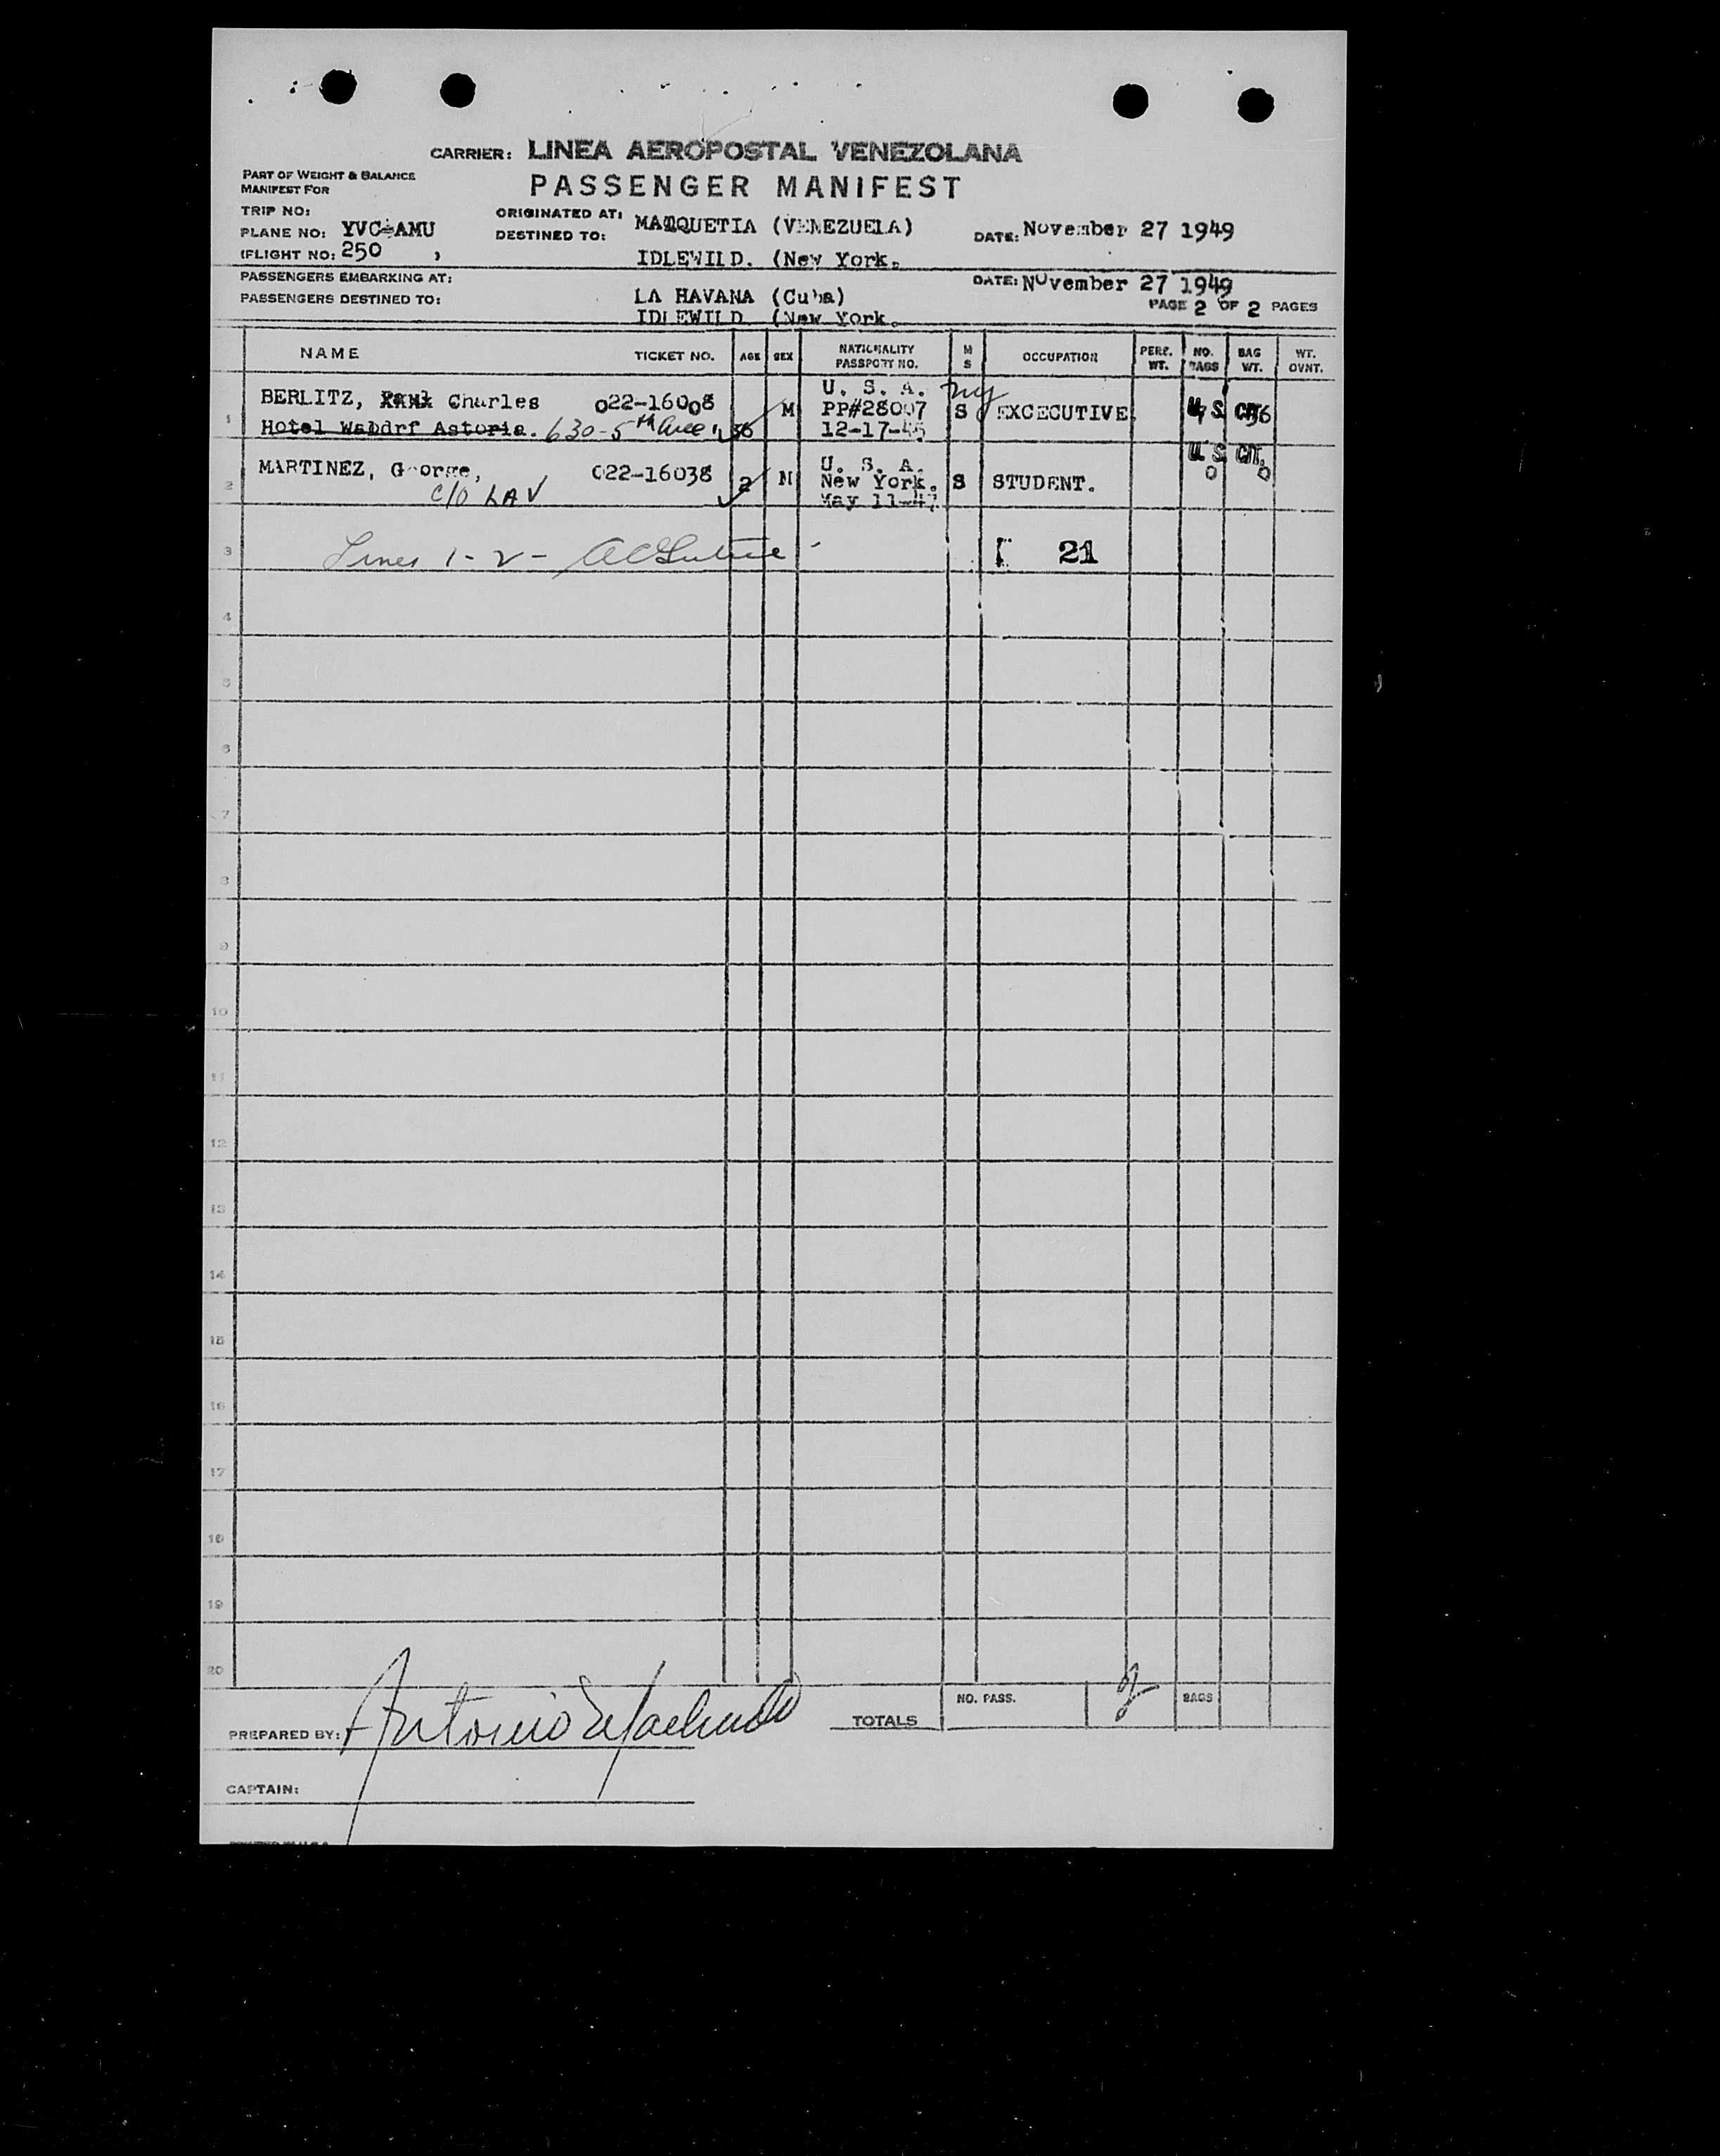 CARRIER: LINEA AEROPOSTAL VENEZOLANA
PART OF WEIGHT & BALANCE
MANIFEST FOR
PASSENGER MANIFEST
TRIP NO:
PLANE NO: YVC-AMU
(FLIGHT NO: 250 ,
ORIGINATED AT: MAIQUETIA (VENEZUELA)
DESTINED TO: IDLEWILD. (New York.
DATE: November 27 1949
PASSENGERS EMBARKING AT: LA HAVANA (Cuba)
PASSENGERS DESTINED TO: IDLEWILD (New York.
DATE: November 27 1949
PAGE 2 OF 2 PAGES
NAME TICKET NO. AGE SEX NATIONALITY PASSPORT NO. M S OCCUPATION PERS. WT. NO. BAGS BAG WT. WT. OVNT.
1 BERLITZ, Charles 022-16008 36 M U. S. A. PP#28007 S EXCECUTIVE U. S. CIT.
Hotel Waldrf Astoria. 630-5th Ave. 12-17-
2 MARTINEZ, George, 022-16038 2 M U. S. A. New York. May 11-47 S STUDENT. U. S. CIT. 0 0
c/o LAV
3 Lines 1-2- 21
4
5
6
7
8
9
10
11
12
13
14
15
16
17
18
19
20
TOTALS NO. PASS. 2 BAGS
PREPARED BY: Antonio
CAPTAIN: